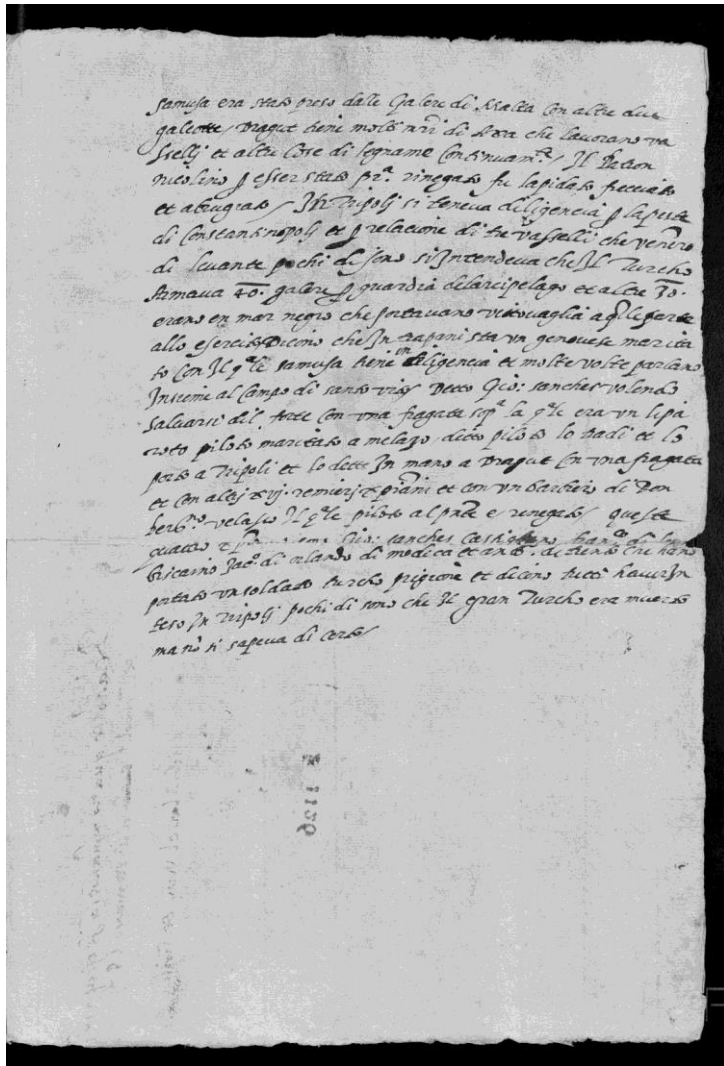 samusa era stato preso dale Galere di Malta con altre due
galeotte / Dragut tiene molti mri di Axa che lavorano va
sselj et altre cose di legname continuamte / Il Patron
nicolino p esser stato pra rinegato fu lapidato frecciato
et abrugiato / In Tripolj si teneva diligencia p la peste
di Constantinopolj et p relacione di tre vasselli che venero
di levante pochi di sono si Intendeva che Il Turcho
Armava 40. galere p guardia delarcipelago et altre 30.
erano en mar negro che portavano vittovaglia a qlle parte
allo esercito Dicino che In trapani sta un genovese marita
to con Il qle samusa tiene Inteligencia et molte volte parlano
Insieme al campo di santo vito Detto Gio: sanches volendo
salvarsi dil forte con una fragata sopa la qle era un lipa
roto piloto maritato a melazo. ditto piloto lo tradi et lo
porto a Tripoli et lo dette In mano a Dragut con una fragata
et con altrj xvj. remierj xpiani et con un barbiero di Don
berno velasco Il qle piloto al pnte e renegato / queste
quattro Gio: sanches Castigliano franco di
biscaino Jaco di orlando di modica et di trento che hano
portato un soldato turcho prigione et dicino tutti haver In
teso In Tripolj pochi di sono che Il gran Turcho era muerto
ma nō si sapeva di certo /
1126